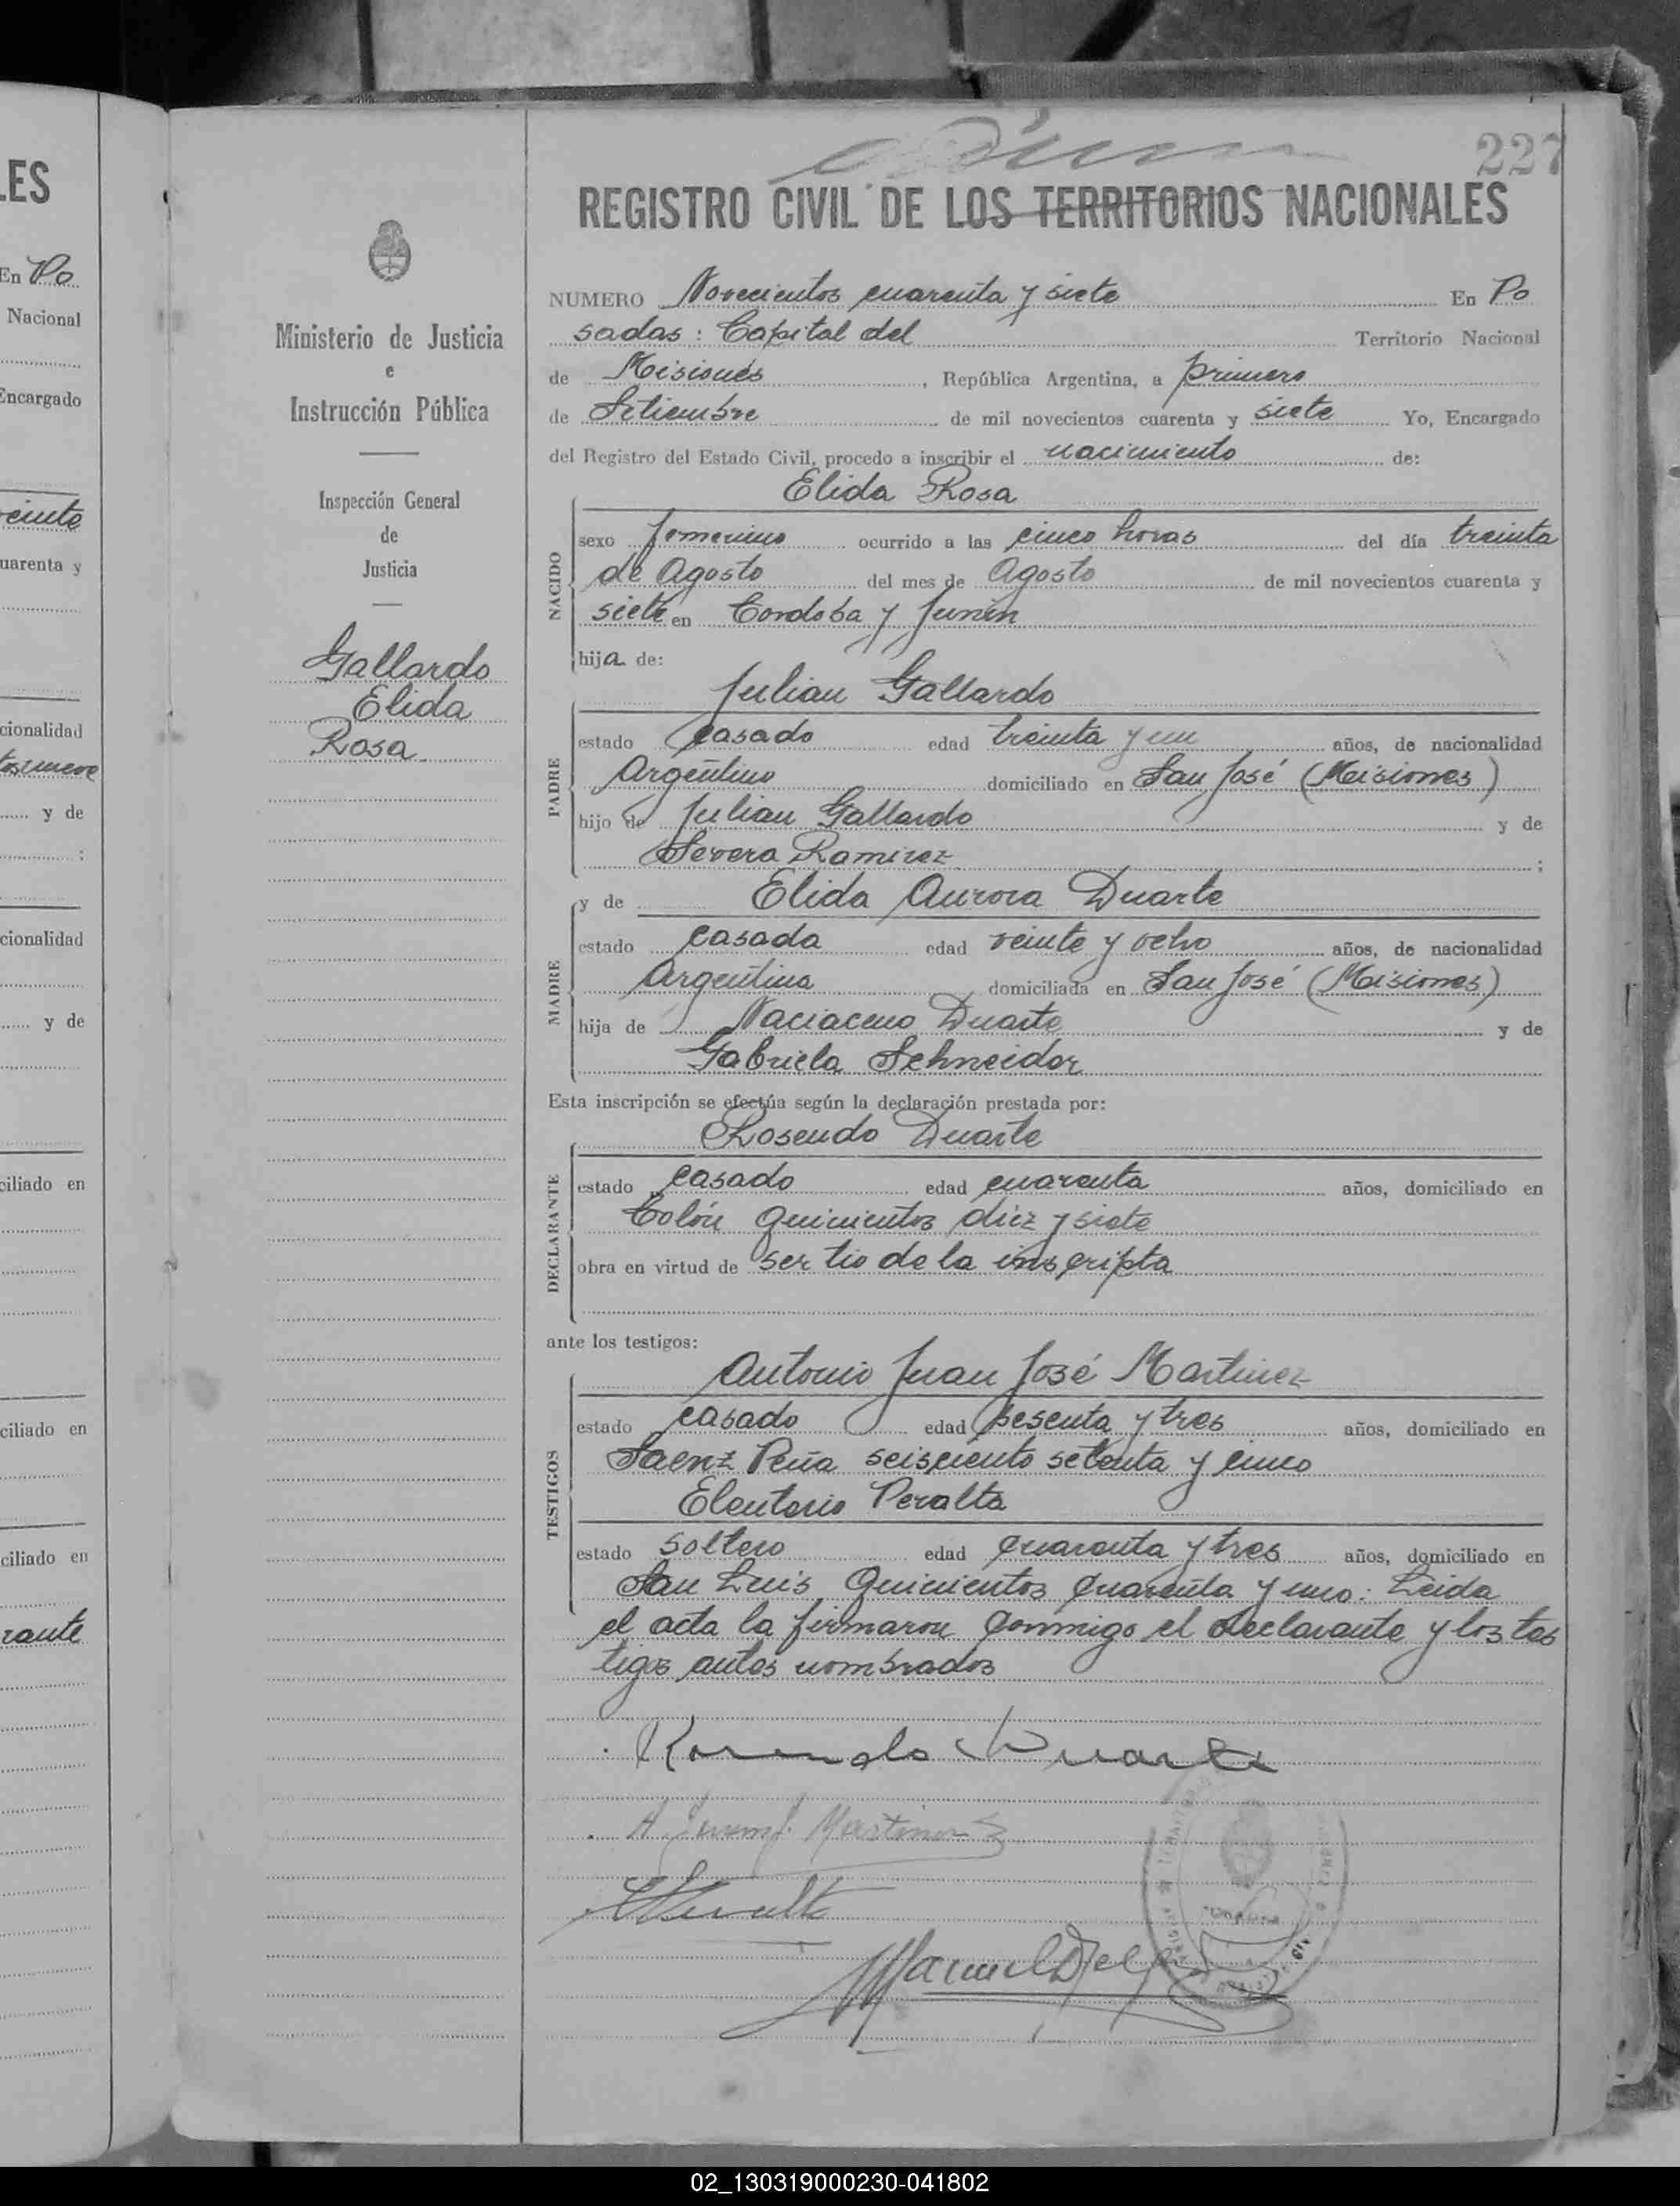 227
REGISTRO CIVIL DE LOS TERRITORIOS NACIONALES
Ministerio de Justicia
e
Instrucción Pública
Inspección General
de
Justicia
Gallardo
Elida
Rosa
NUMERO Novecientos cuarenta y siete En Po
sadas: Capital del Territorio Nacional
de Misiones, República Argentina, a primero
de Setiembre de mil novecientos cuarenta y siete Yo, Encargado
del Registro del Estado Civil, procedo a inscribir el nacimiento de:
Elida Rosa
NACIDO
sexo femenino ocurrido a las cinco horas del día treinta
de Agosto del mes de Agosto de mil novecientos cuarenta y
siete en Cordoba y Junin
hija de:
Julian Gallardo
PADRE
estado casado edad treinta y un años, de nacionalidad
Argentino domiciliado en San José (Misiones)
hijo de Julian Gallardo y de
Severa Ramirez ;
y de Elida Aurora Duarte
MADRE
estado casada edad veinte y ocho años, de nacionalidad
Argentina domiciliada en San José (Misiones)
hija de Naciaceno Duarte y de
Gabriela Schneider
Esta inscripción se efectúa según la declaración prestada por:
Rosendo Duarte
DECLARANTE
estado casado edad cuarenta años, domiciliado en
Colón quinientos diez y siete
obra en virtud de ser tio de la inscripta
ante los testigos:
Antonio Juan José Martinez
TESTIGOS
estado casado edad sesenta y tres años, domiciliado en
Saenz Peña seisciento setenta y cinco
Eleuterio Peralta
estado soltero edad cuarenta y tres años, domiciliado en
San Luis Quinientos cuarenta y uno: Leida
el acta la firmaron conmigo el declarante y los tes
tigos antes nombrados
Rosendo Duarte
A. Juan J. Martinez
02_130319000230-041802